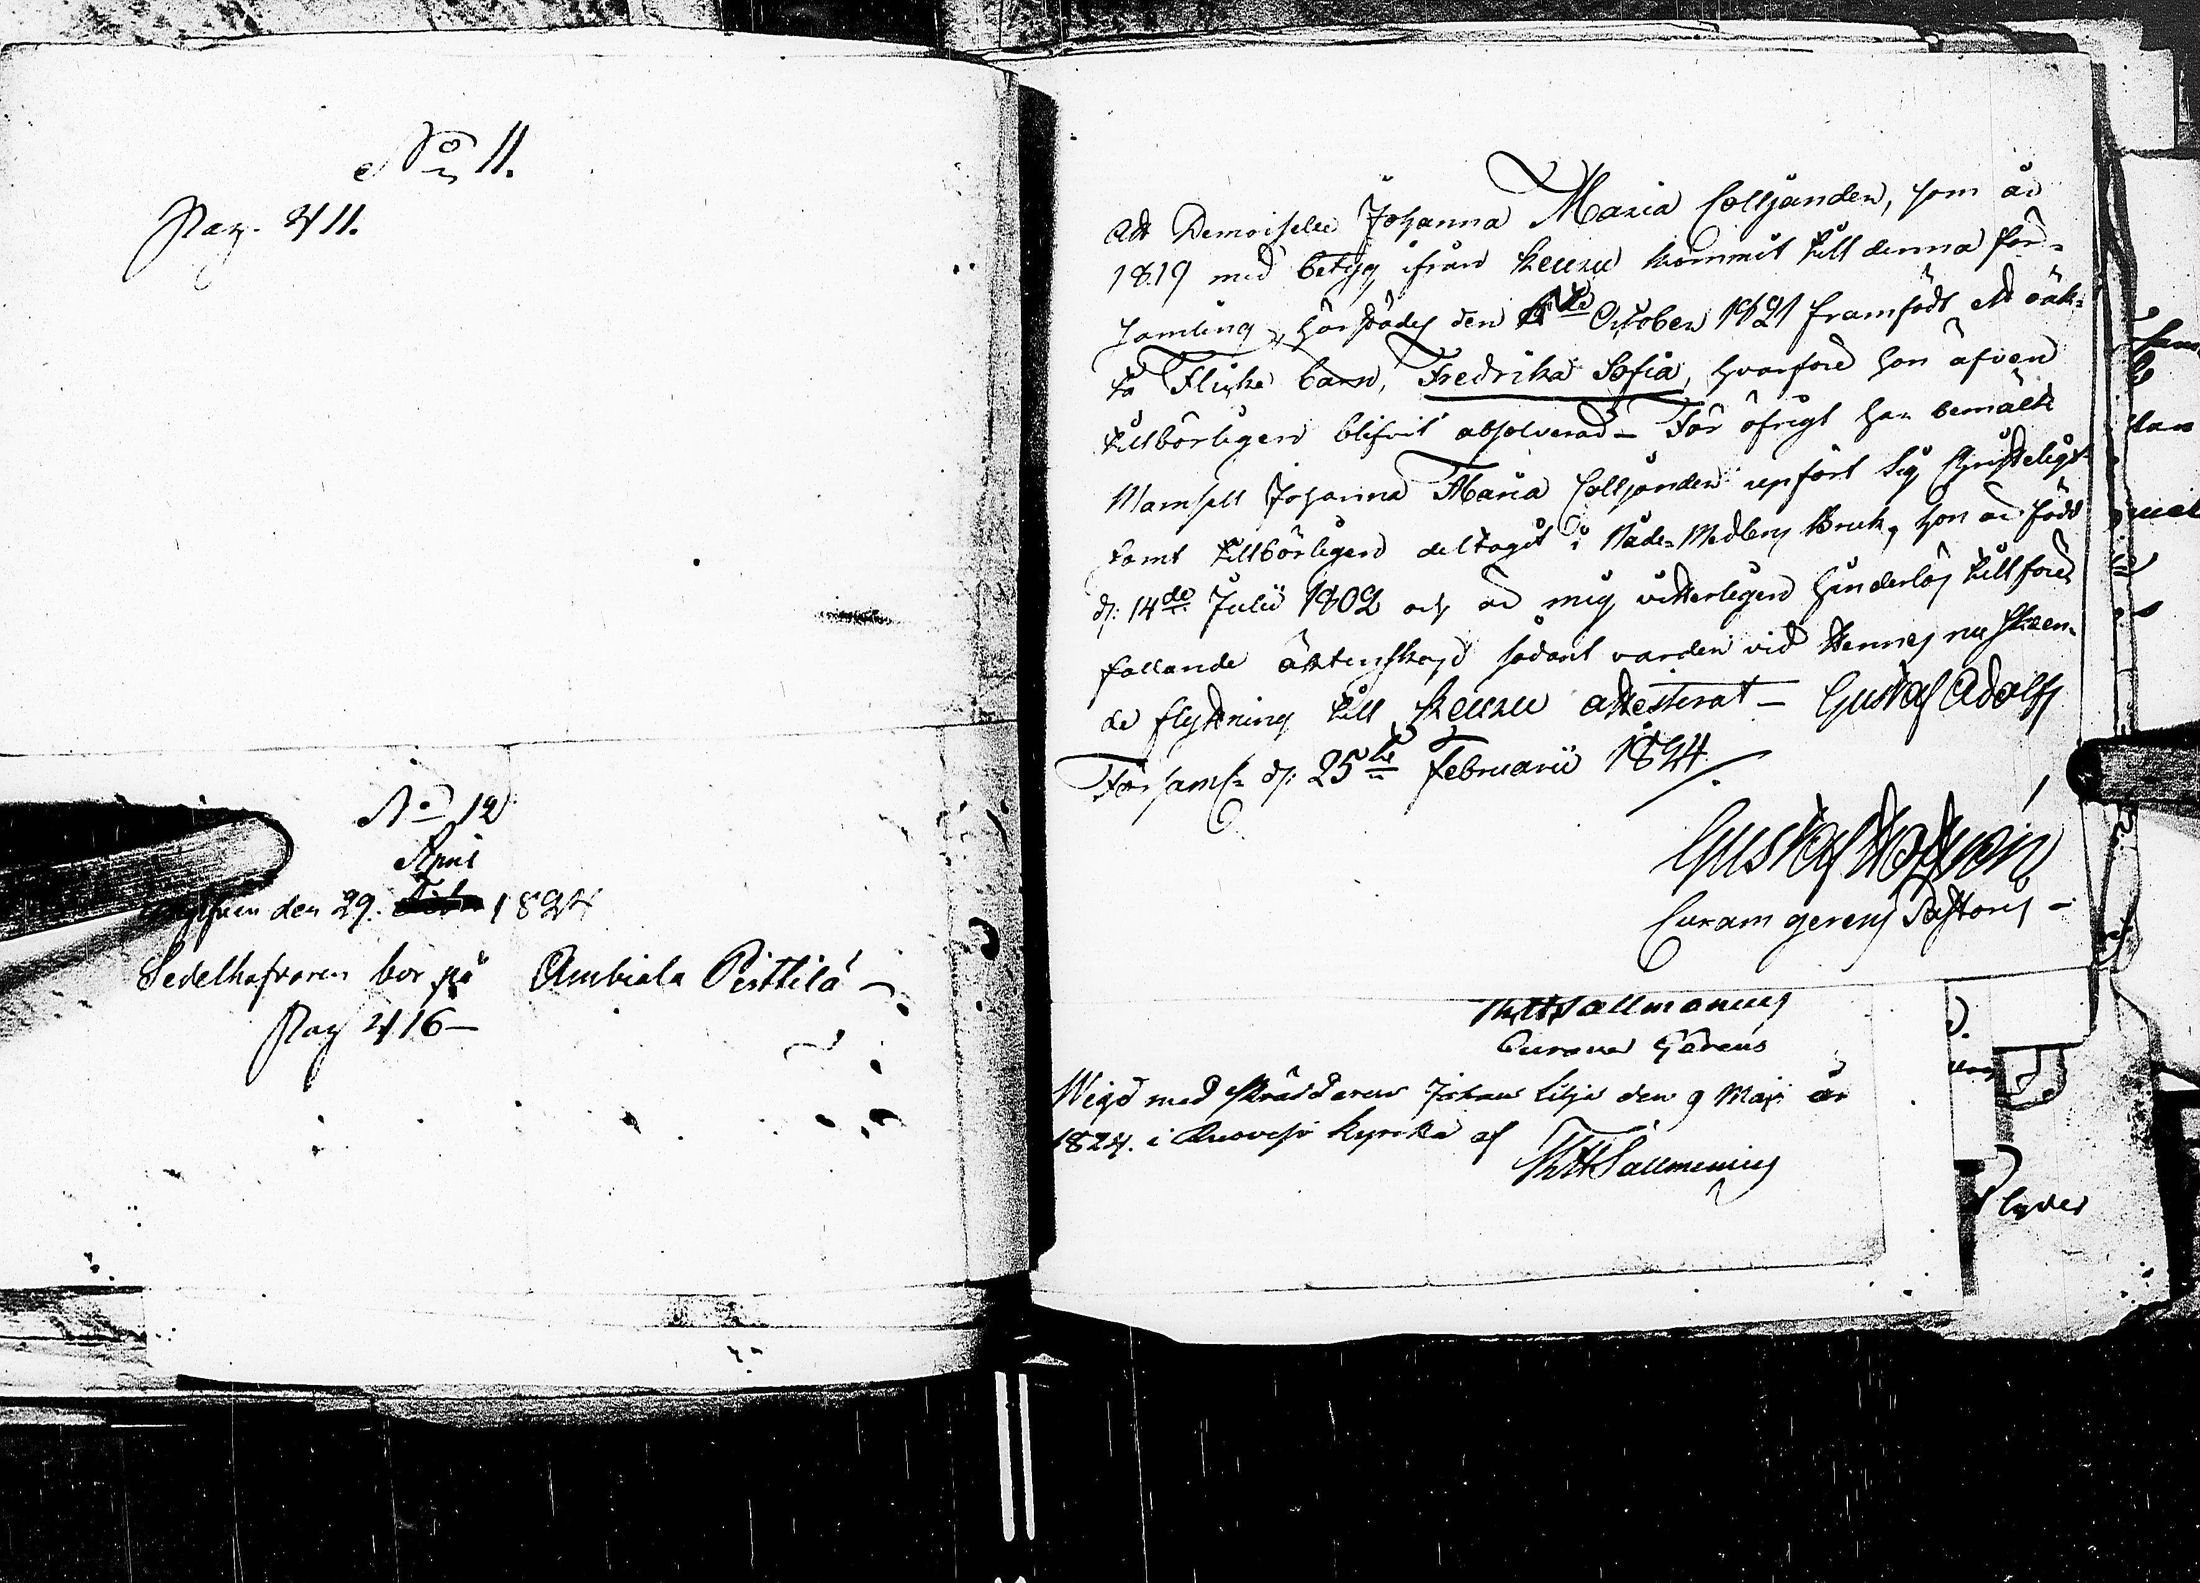 No 11.
Pag. 411.
No 12
April
den 29. 1824
Sedelhafvaren bor på Ambiala Perttilä
Pag 416
Att Demoiselle Johanna Maria Colljander, som år
1819 med betyg ifrån Keuru kommit till denna För-
samling, härstädes den October 1821 framfödt ett oäk-
ta Flicke barn, Fredrika Sofia, hvarföre hon äfven
tillbörligen blifvit absolverad – För öfrigt har bemälte
Mamsell Johanna Maria Colljander upfört sig Christeligt
samt tillbörligen deltagit i Nåde-Medlens Bruk, hon är född
d: 14de Julii 1802 och är mig vitterligen hinderlös till före
fallande äktenskap sådant varder vid Hennes nu skeen-
de flyttning till Keuru attesterat – Gustaf Adolfs
Församl: d: 25te Februarii 1824
Gustaf
Curam gerens Pastoris –
Sallmenius
Curam Gerens
Wigd med Skräddaren Johan Lilja den 9 Maji år
1824. i Ruovesi kyrcka af
Sallmenius